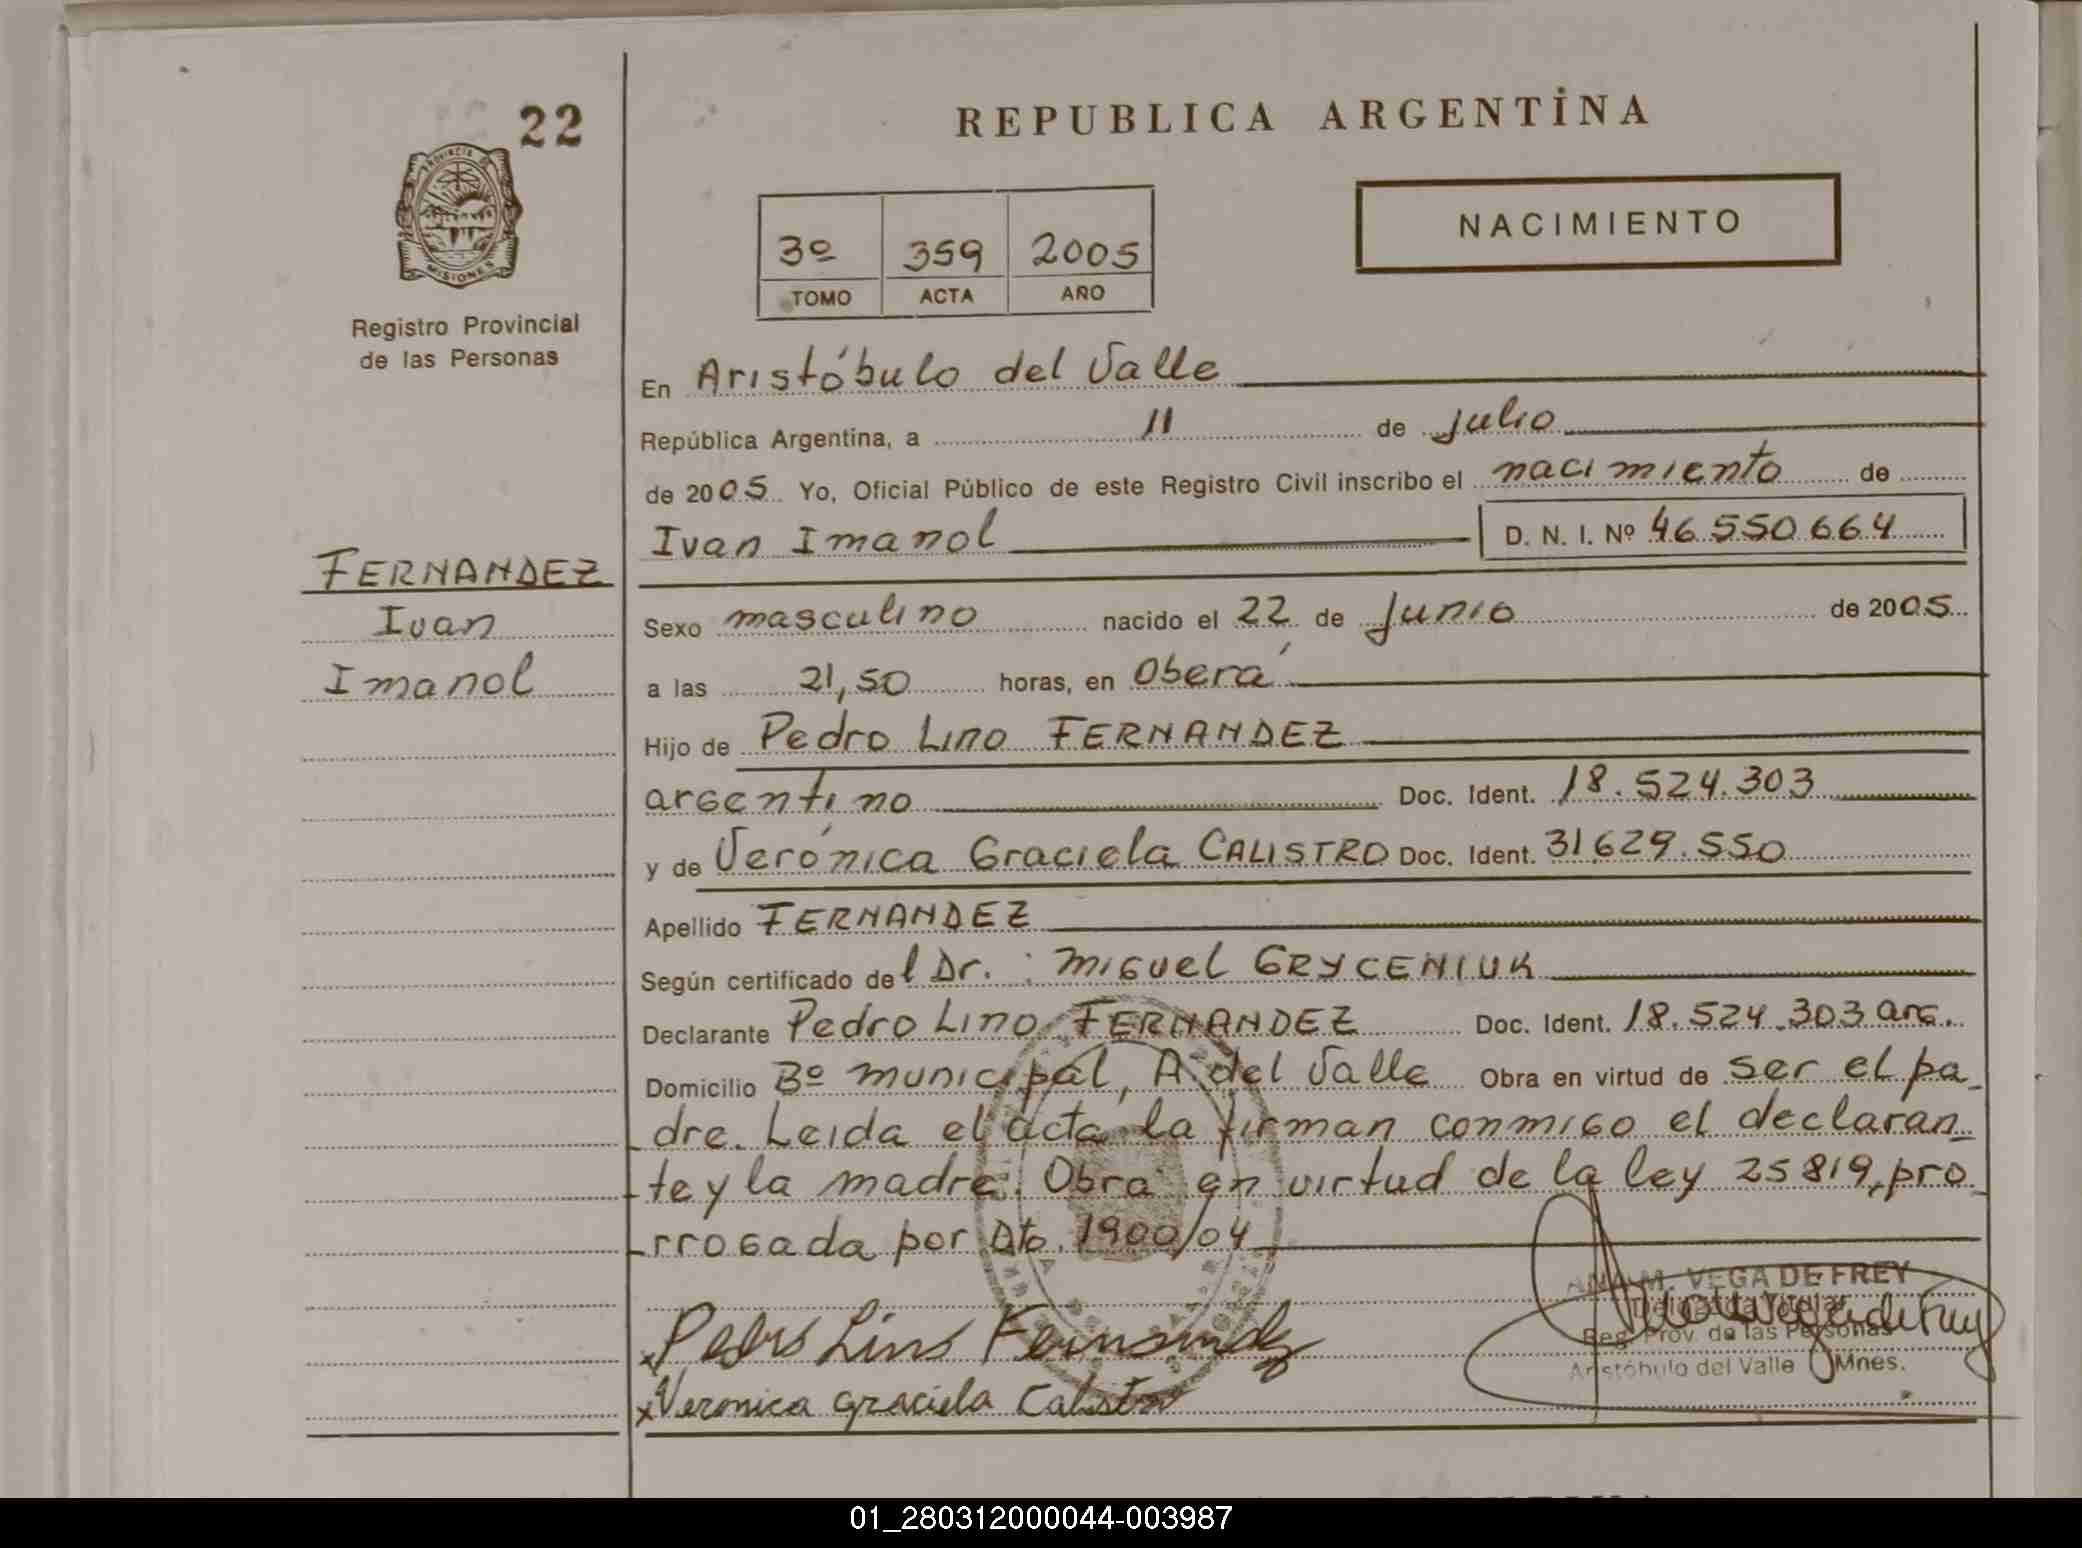 22
REPUBLICA ARGENTINA
PROVINCIA DE
MISIONES
NACIMIENTO
3º 359 2005
TOMO ACTA AÑO
Registro Provincial
de las Personas
En Aristóbulo del Valle
República Argentina, a 11 de Julio
de 2005 Yo, Oficial Público de este Registro Civil inscribo el nacimiento de
Ivan Imanol D. N. I. Nº 46.550.664
FERNANDEZ
Ivan
Imanol
Sexo masculino nacido el 22 de Junio de 2005
a las 21,50 horas, en Oberá
Hijo de Pedro Lino FERNANDEZ
argentino Doc. Ident. 18.524.303
y de Verónica Graciela CALISTRO Doc. Ident. 31.629.550
Apellido FERNANDEZ
Según certificado del Dr. : Miguel GRYCENIUK
Declarante Pedro Lino FERNANDEZ Doc. Ident. 18.524.303 arg.
Domicilio Bº municipal, A. del Valle Obra en virtud de ser el pa_
dre. Leida el acta la firman conmigo el declaran_
te y la madre. Obra en virtud de la ley 25819, pro_
rrogada por Dto. 1900/04
ANA M. VEGA DE FREY
Reg. Prov. de las Personas
Aristóbulo del Valle Mnes.
x Pedro Lino Fernandez
x Veronica Graciela Calistro
01_280312000044-003987